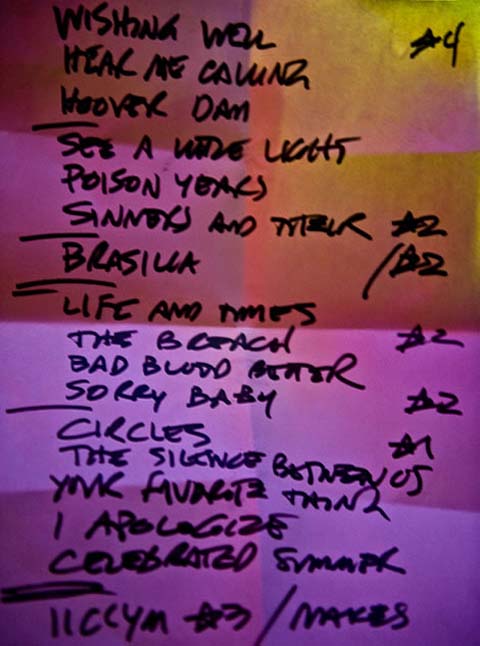 WISHING WELL ☆4
HEAR ME CALLING
HOOVER DAM
SEE A LITTLE LIGHT
POISON YEARS
SINNERS AND THEIR ☆2
BRASILIA /☆2
LIFE AND TIMES
THE BREACH ☆2
BAD BLOOD BETTER
SORRY BABY ☆2
CIRCLES ☆1
THE SILENCE BETWEEN US
YOUR FAVORITE THING
I APOLOGIZE
CELEBRATED SUMMER
IICCYM ☆3 / MAKES